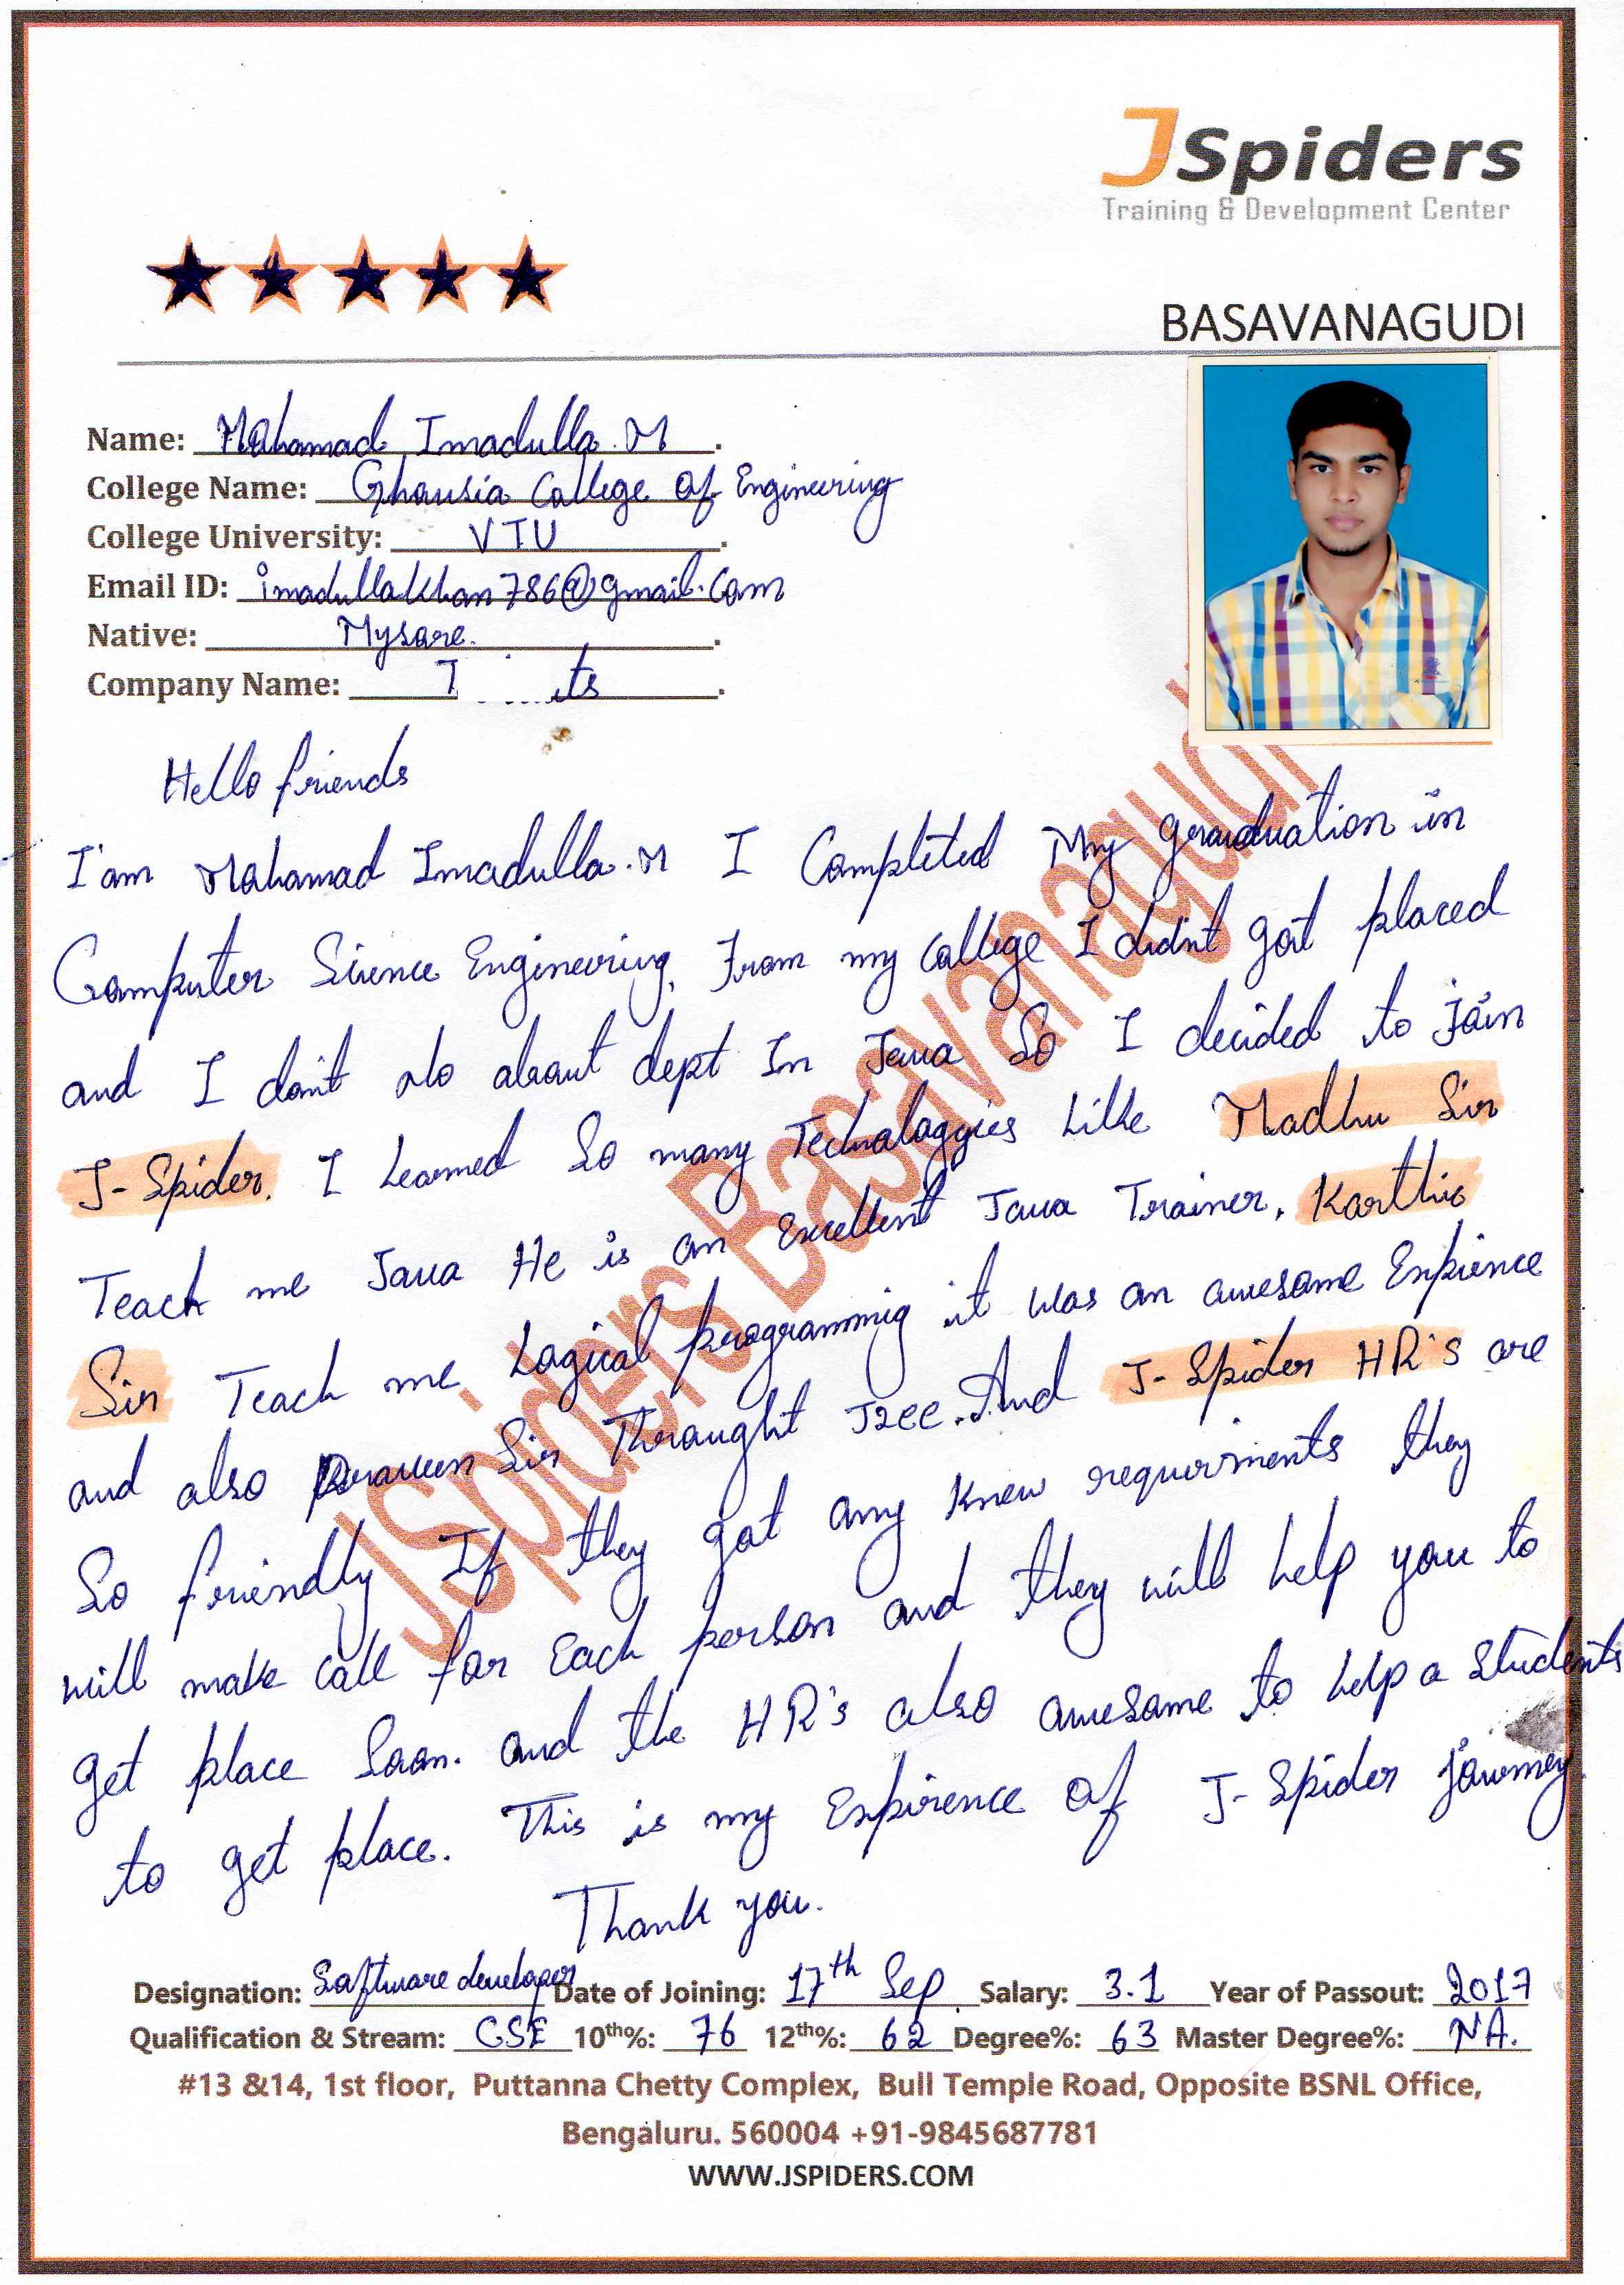 JSpiders
Training & Development Center
BASAVANAGUDI
Name: Mohamad Imadulla.M.
College Name: Ghousia College of Engineering
College University: VTU.
Email ID: imadullakhan786@gmail.com
Native: Mysore.
Company Name: T ts.
Hello friends
I'am Mohamad Imadulla.M I Completed My graduation in
Computer Science Engineering, From my College I didn't got placed
and I don't No about dept In Java So I decided to join
J-Spider. I Learned So many Technologgies Like Madhu Sir
Teach me Java He is an Excellent Java Trainer, Karthic
Sir Teach me Logical programmig it was an awesome Expirence
and also Praveen Sir Throught J2EE. And J-Spider HR's are
So friendly If they got any Knew requirments they
will make call for Each person and they will help you to
get place Soon. and the HR's also awesome to help a Students
to get place. This is my Expirence of J-Spider journey.
Thank you.
Designation: Software developer Date of Joining: 17th Sep Salary: 3.1 Year of Passout: 2017
Qualification & Stream: CSE 10th%: 76 12th%: 62 Degree%: 63 Master Degree%: NA.
#13 &14, 1st floor, Puttanna Chetty Complex, Bull Temple Road, Opposite BSNL Office,
Bengaluru. 560004 +91-9845687781
WWW.JSPIDERS.COM
JSpiders Basavanagudi